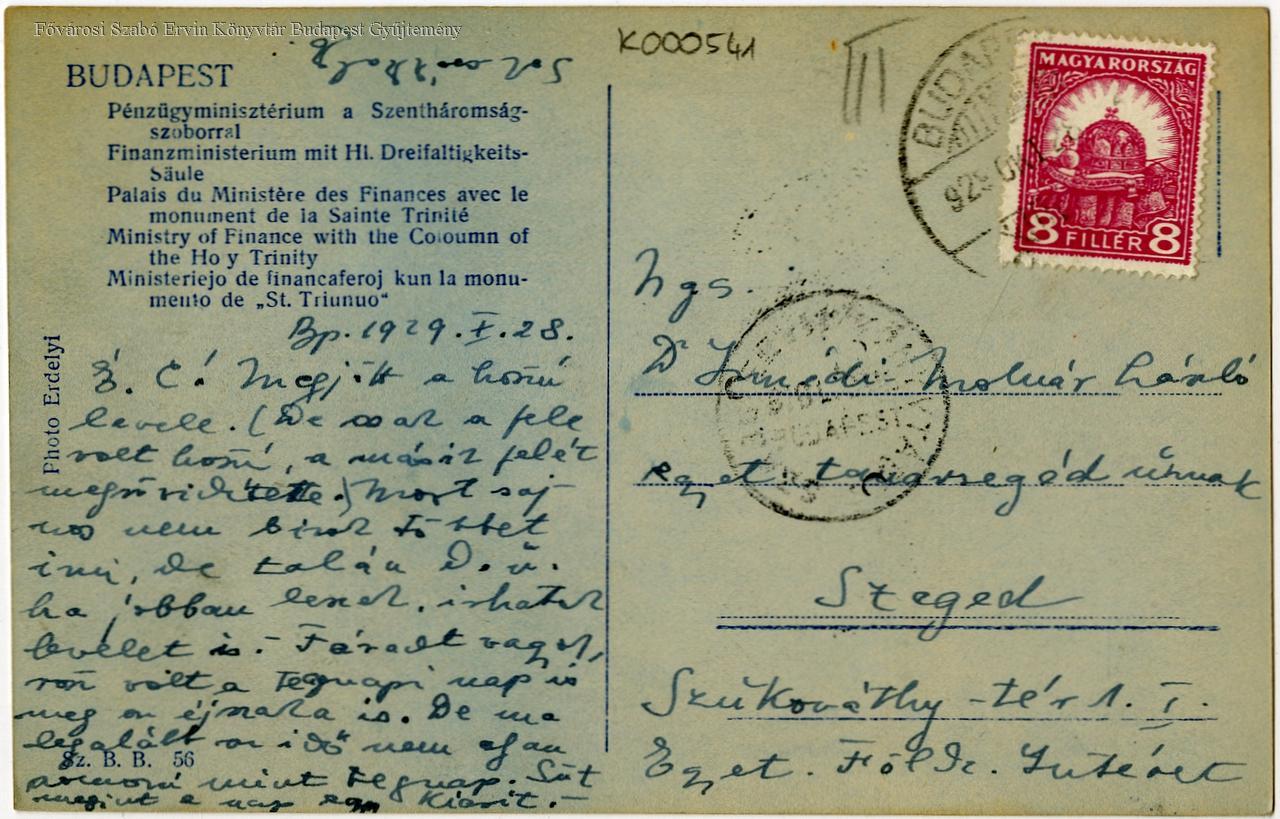 Fővárosi Szabó Ervin Könyvtár Budapest Gyűjtemény
K000541
III
BUDAPEST
Pénzügyminisztérium a Szentháromság-
szoborral
Finanzministerium mit Hl. Dreifaltigkeits-
Säule
Palais du Ministère des Finances avec le
monument de la Sainte Trinité
Ministry of Finance with the Coloumn of
the Ho y Trinity
Ministeriejo de financaferoj kun la monu-
mento de „St. Triunuo“
Photo Erdelyi
Bp. 1929. X. 28.
É. C! Megjött a hosszú
levele. (De csak a fele
volt hosszú, a másik felét
megrövidítette.) Most saj-
nos nem birok többet
irni, de talán D. u.
ha jobban leszek, irhatok
levelet is. - Fáradt vagyok,
volt a tegnapi nap is
meg az éjszaka is. De ma
legalább az idő nem olyan
mint tegnap. Süt
megint a nap egy kicsit. -
Sz. B. B. 56
MAGYARORSZÁG
8 FILLÉR 8
BUDAPEST
929 OKT 28
BUDAPEST
Ngs.
Dr Imrédi-Molnár László
egyet. tanársegéd úrnak
Szeged
Szukováthy-tér 1. I.
Egyet. Földr. Intézet